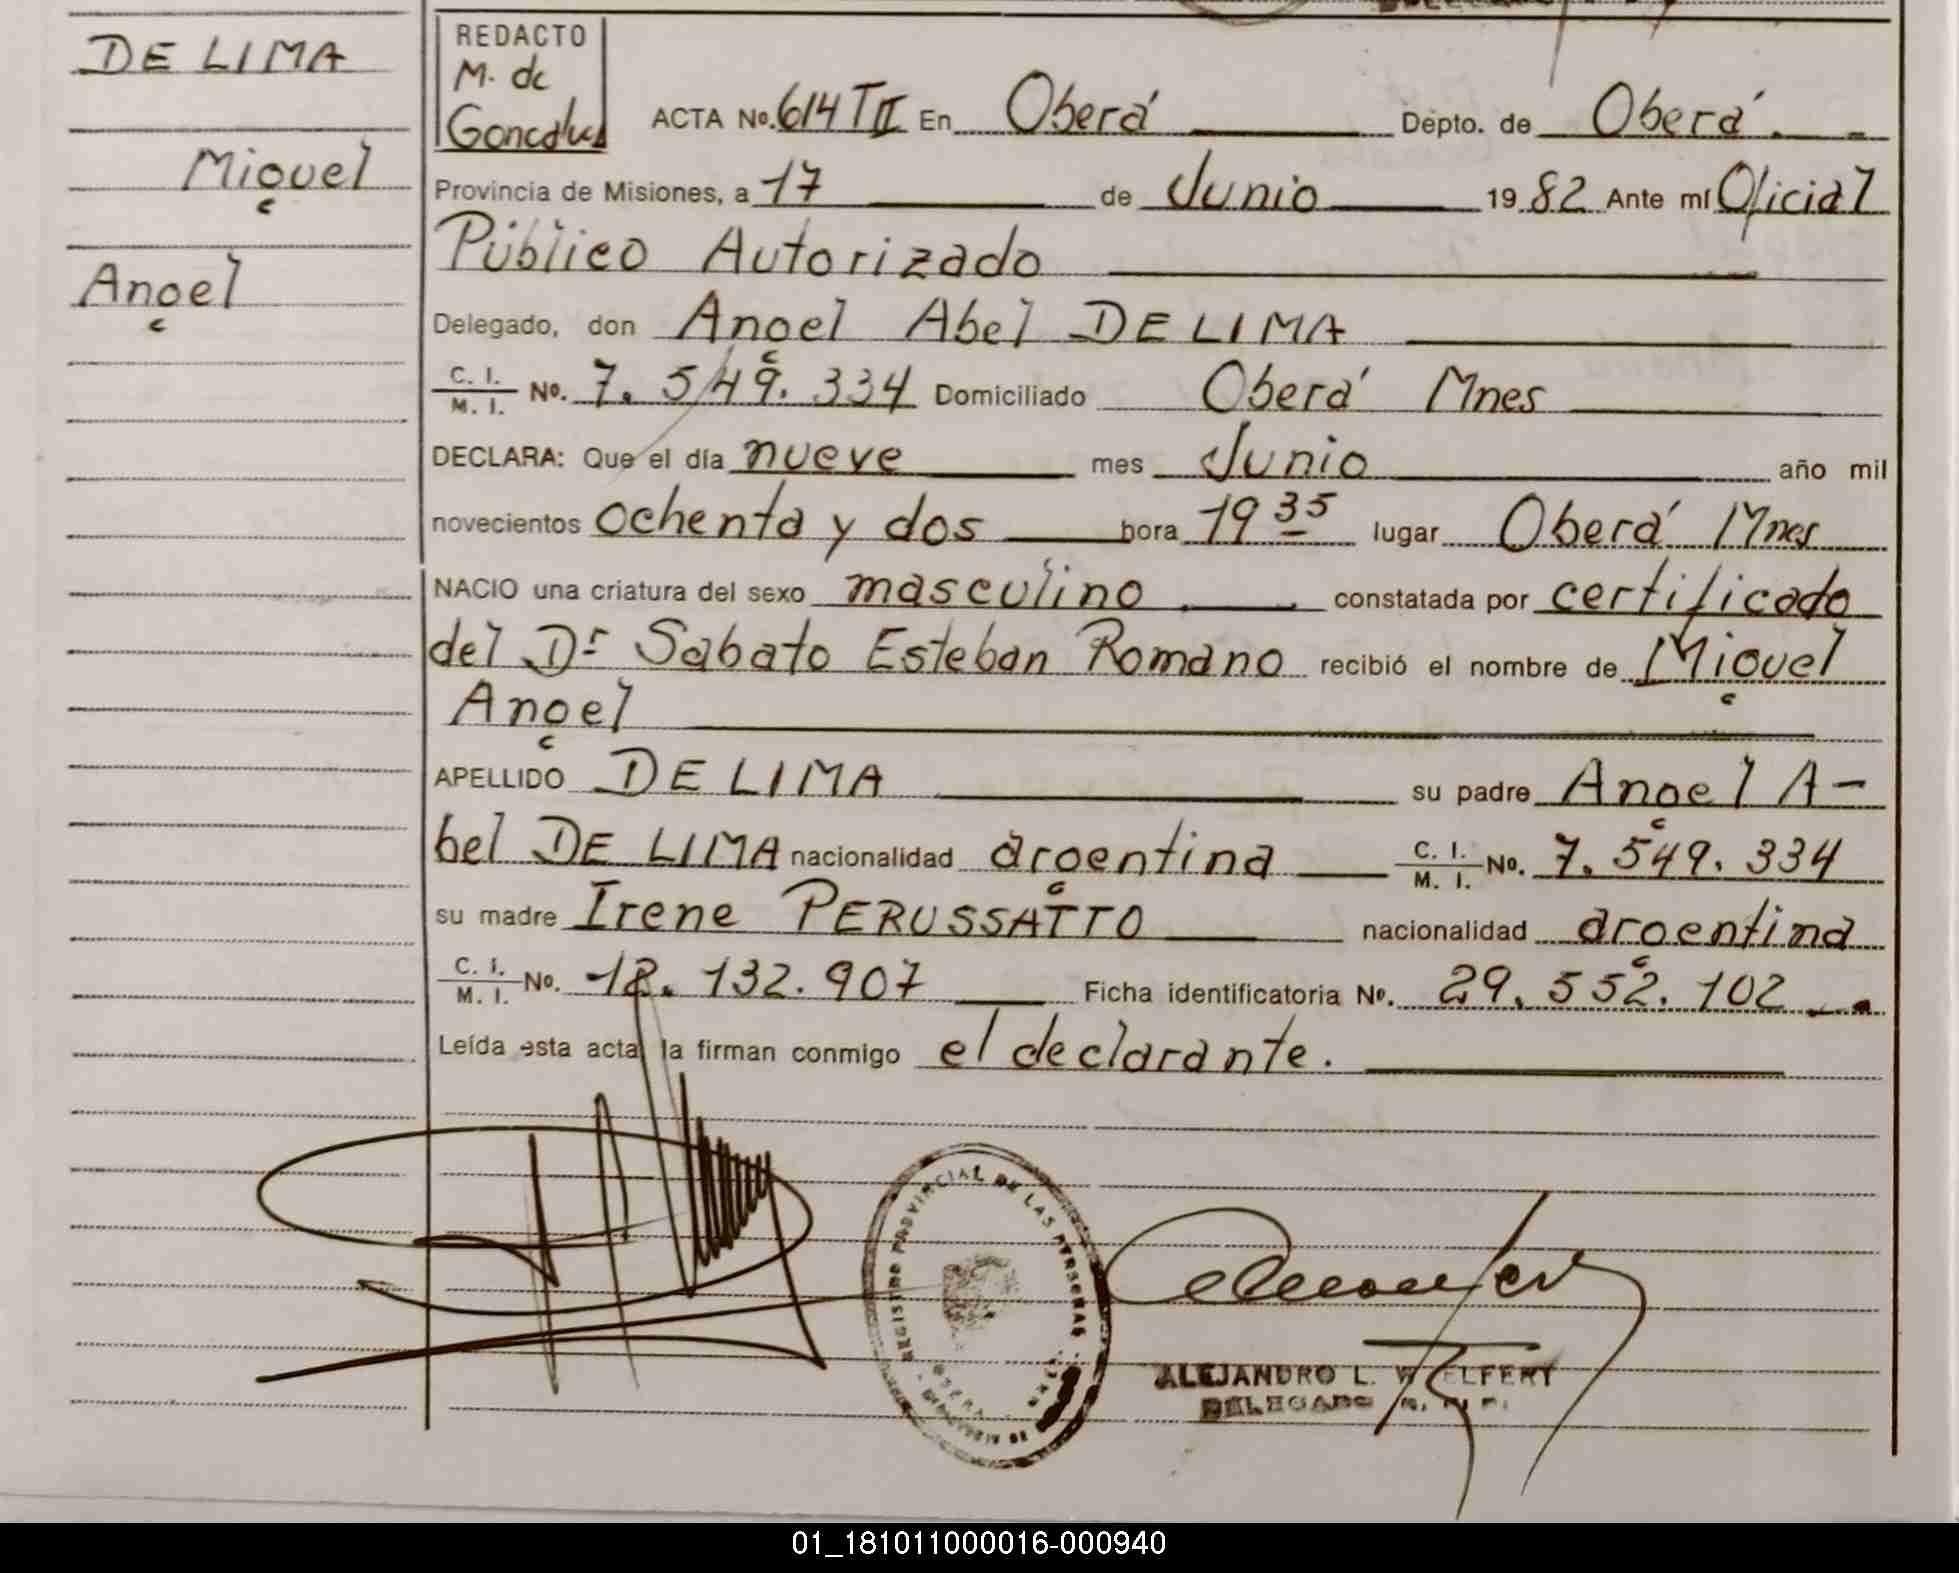 DE LIMA
Miguel
Angel
REDACTO
M. de
ACTA No. 614 T II En Oberá Depto. de Oberá
Provincia de Misiones, a 17 de Junio 1982 Ante mí Oficial
Público Autorizado
Delegado, don Angel Abel DE LIMA
C. I. / M. I. No. 7.549.334 Domiciliado Oberá Mnes
DECLARA: Que el día nueve mes Junio año mil
novecientos ochenta y dos hora 19 35 lugar Oberá Mnes
NACIO una criatura del sexo masculino constatada por certificado
del Dr Sabato Esteban Romano recibió el nombre de Miguel
Angel
APELLIDO DE LIMA su padre Angel A-
bel DE LIMA nacionalidad argentina C. I. / M. I. No. 7.549.334
su madre Irene PERUSSATTO nacionalidad argentina
C. I. / M. I. No. 18.132.907 Ficha identificatoria No. 29.552.102
Leída esta acta la firman conmigo el declarante.
REGISTRO PROVINCIAL DE LAS PERSONAS
ALEJANDRO L.
DELEGADO
01_181011000016-000940